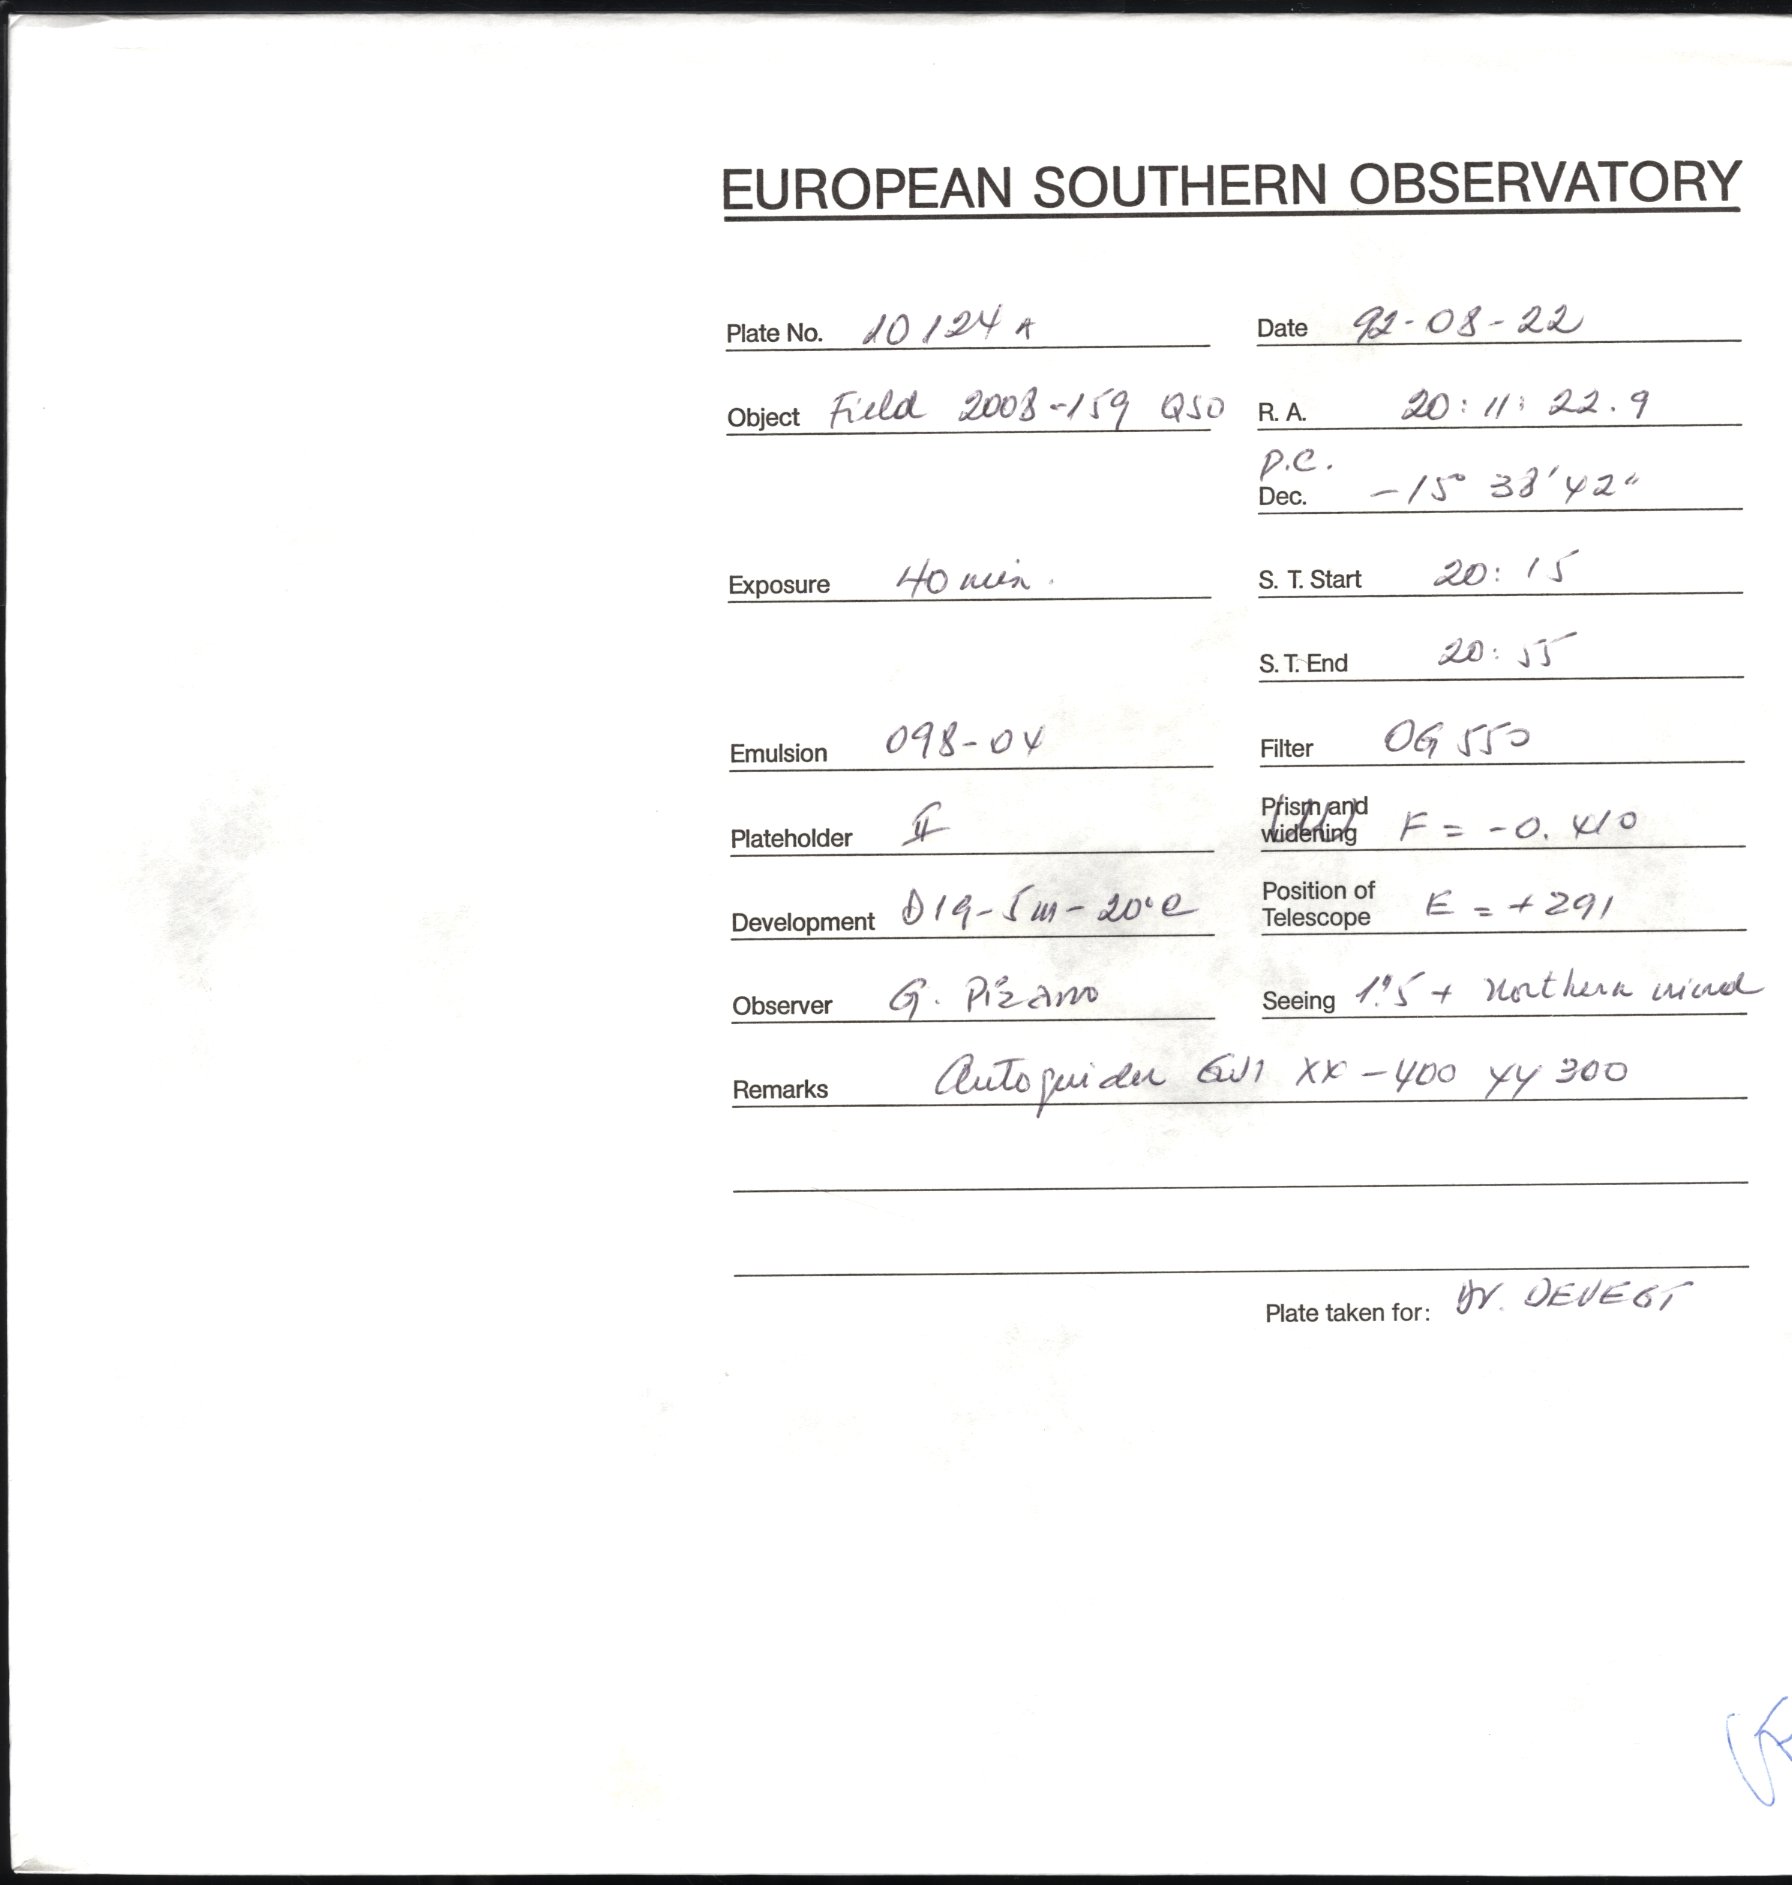 EUROPEAN SOUTHERN OBSERVATORY
Plate No. 10124 A Date 92-08-22
Object Field 2008-159 QSO R. A. 20:11:22.9
P.C.
Dec. -15° 38' 42"
Exposure 40 min. S. T. Start 20:15
S. T. End 20:55
Emulsion 098-04 Filter OG 550
Plateholder II Prism and widening F = -0.410
Development D19-5m-20°C Position of Telescope E = +291
Observer G. Pizarro Seeing 1".5 + Northern wind
Remarks Autoguider XX -400 YY 300
Plate taken for: Dr. DEVEGT